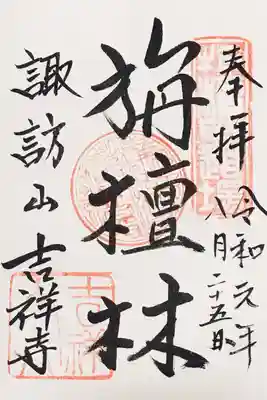 奉拝
令和元年
八月二十五日
旃檀林
諏訪山吉祥寺